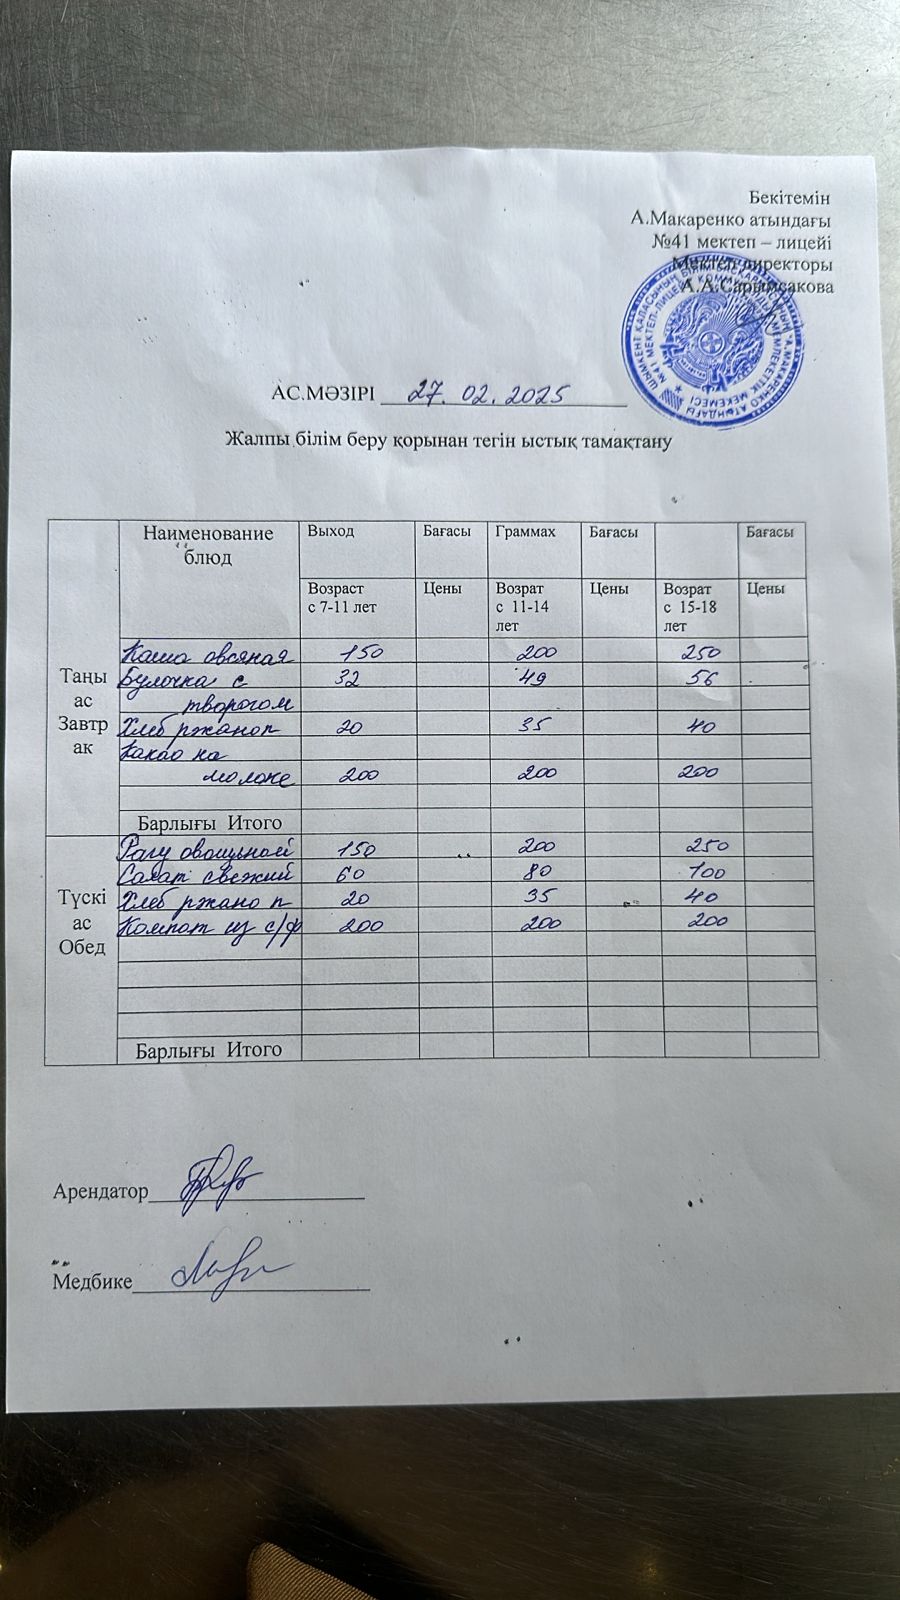 Бекітемін
А.Макаренко атындағы
№41 мектеп – лицейі
Мектеп директоры
А.А.Сарымсакова
АС.МӘЗІРІ 27.02.2025
Жалпы білім беру қорынан тегін ыстық тамақтану
Наименование блюд Выход Бағасы Граммах Бағасы Бағасы
Возраст с 7-11 лет Цены Возрат с 11-14 лет Цены Возрат с 15-18 лет Цены
Таңы ас Завтр ак
Каша овсяная 150 200 250
Булочка с 32 49 56
творогом
Хлеб ржаноп 20 35 40
Какао на
молоке 200 200 200
Барлығы Итого
Түскі ас Обед
Рагу овощьной 150 200 250
Салат свежий 60 80 100
Хлеб ржано п 20 35 40
Компот из с/ф 200 200 200
Барлығы Итого
Арендатор
Медбике